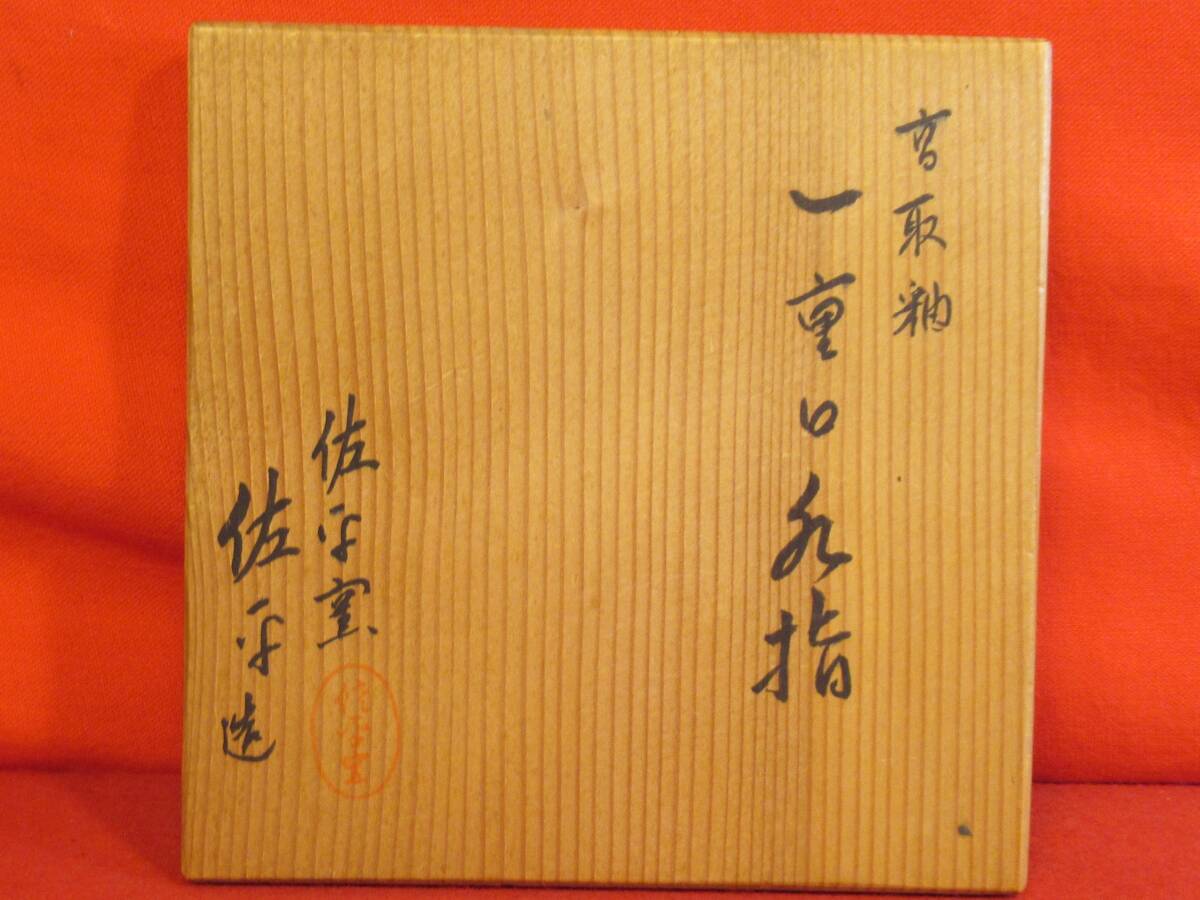 高取釉
一重口水指
佐平窯
佐平造
佐平窯